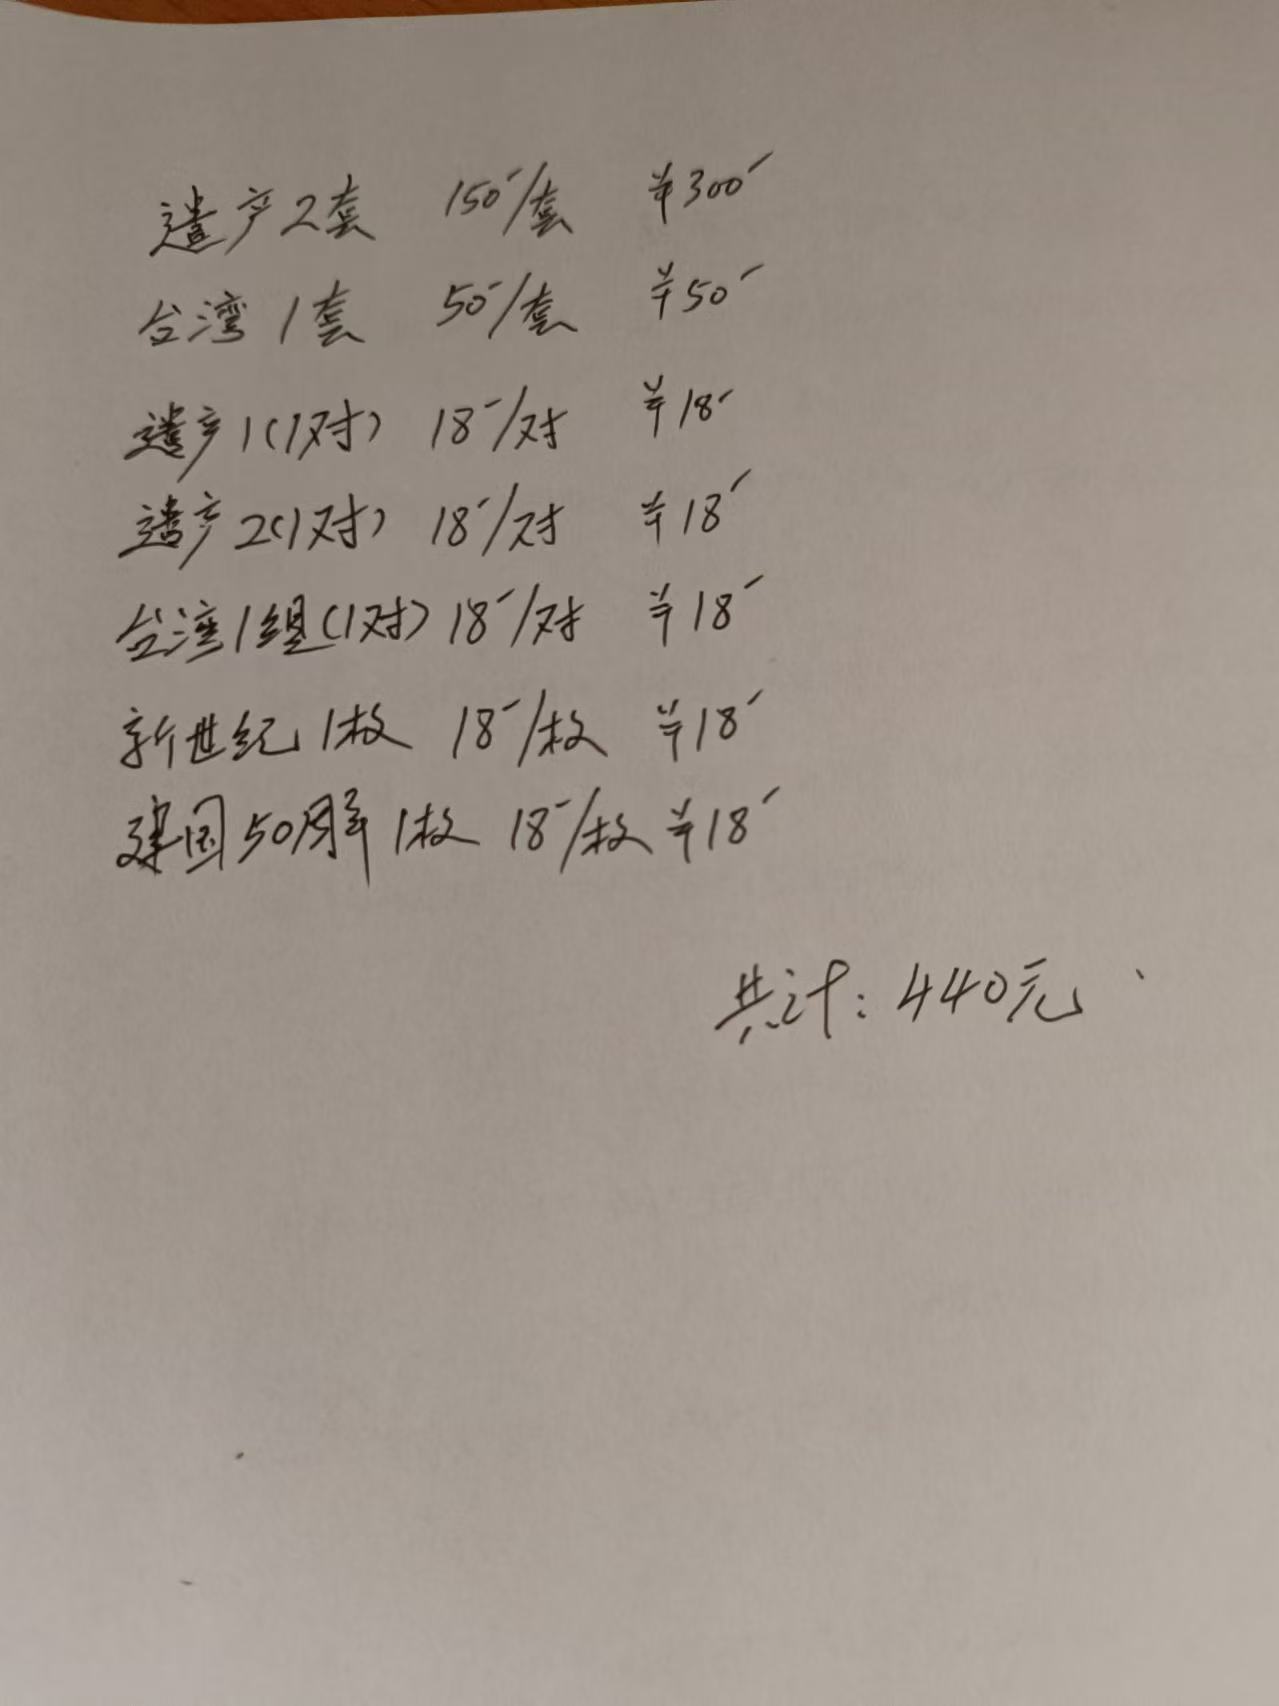 遗产2套 150-/套 ¥300-
台湾1套 50-/套 ¥50-
遗产1(1对) 18-/对 ¥18-
遗产2(1对) 18-/对 ¥18-
台湾1组(1对) 18-/对 ¥18-
新世纪1枚 18-/枚 ¥18-
建国50周年1枚 18-/枚 ¥18-
共计:440元